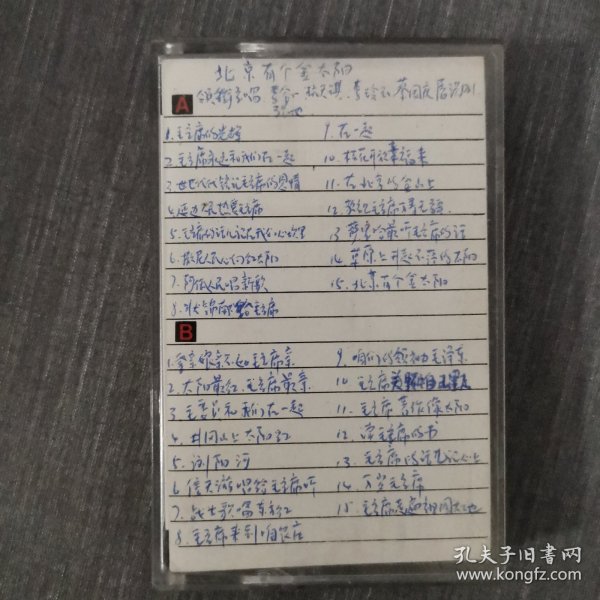 北京有个金太阳
A 领衔主唱 李玲玉 蔡国庆 屠洪刚
1.毛主席的光辉
2.毛主席永远和我们在一起
3.世世代代铭记毛主席的恩情
4.延边人民热爱毛主席
5.毛主席的话儿记在我们心坎里
6.撒尼人民心向红太阳
7.阿佤人民唱新歌
8.壮锦献给毛主席
9.在一起
10.桔花开放幸福来
11.在北京的金山上
12.敬祝毛主席万寿无疆
13.萨里哈最听毛主席的话
14.草原上升起不落的太阳
15.北京有个金太阳
B
1.爹亲娘亲不如毛主席亲
2.太阳最红、毛主席最亲
3.毛委员和我们在一起
4.井冈山上太阳红
5.浏阳河
6.信天游唱给毛主席听
7.战士歌唱东方红
8.毛主席来到咱农庄
9.咱们的领袖毛泽东
10.毛主席
11.毛主席著作像太阳
12.读毛主席的书
13.毛主席的话儿记心上
14.万岁毛主席
15.毛主席
孔夫子旧书网
www.kongfz.com